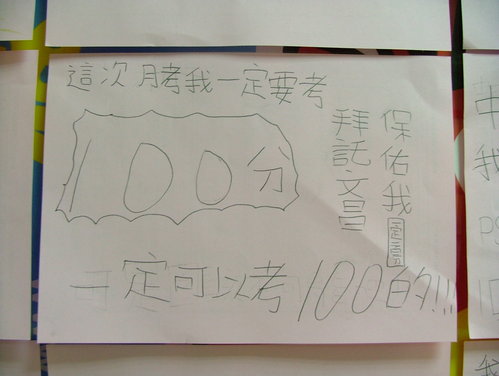 這次月考我一定要考
100分
拜託文昌
保佑我
一定可以考100的!!!!
中
我
我